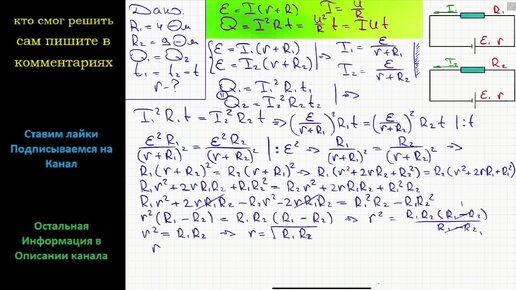 кто смог решить
сам пишите в
комментариях
Ставим лайки
Подписываемся на
Канал
Остальная
Информация в
Описании канала
Дано:
R₁ = 4 Ом
R₂ = 9 Ом
Q₁ = Q₂
t₁ = t₂ = t
r - ?
ℰ = I(r+R) I = U/R
Q = I²Rt = U²/R t = IUt
{ ℰ = I₁(r+R₁) | ⇒ I₁ = ℰ/(r+R₁)
ℰ = I₂(r+R₂) | I₂ = ℰ/(r+R₂)
Q₁ = I₁²R₁t₁ | ⇒
Q₂ = I₂²R₂t₂
I₁²R₁t = I₂²R₂t ⇒ (ℰ/(r+R₁))²R₁t = (ℰ/(r+R₂))²R₂t | :t
ℰ²R₁/(r+R₁)² = ℰ²R₂/(r+R₂)² | :ℰ² ⇒ R₁/(r+R₁)² = R₂/(r+R₂)² ⇒
R₁(r+R₂)² = R₂(r+R₁)² ⇒ R₁(r²+2rR₂+R₂²) = R₂(r²+2rR₁+R₁²)
R₁r²+2rR₁R₂+R₁R₂² = R₂r²+2rR₁R₂+R₁²R₂
R₁r²+2rR₁R₂-R₂r²-2rR₁R₂ = R₁²R₂-R₁R₂²
r²(R₁-R₂) = R₁R₂(R₁-R₂) ⇒ r² = R₁R₂(R₁-R₂)/(R₁-R₂)
r² = R₁R₂ ⇒ r = √R₁R₂
r
I₁ R₁
ℰ, r
I₂ R₂
ℰ, r